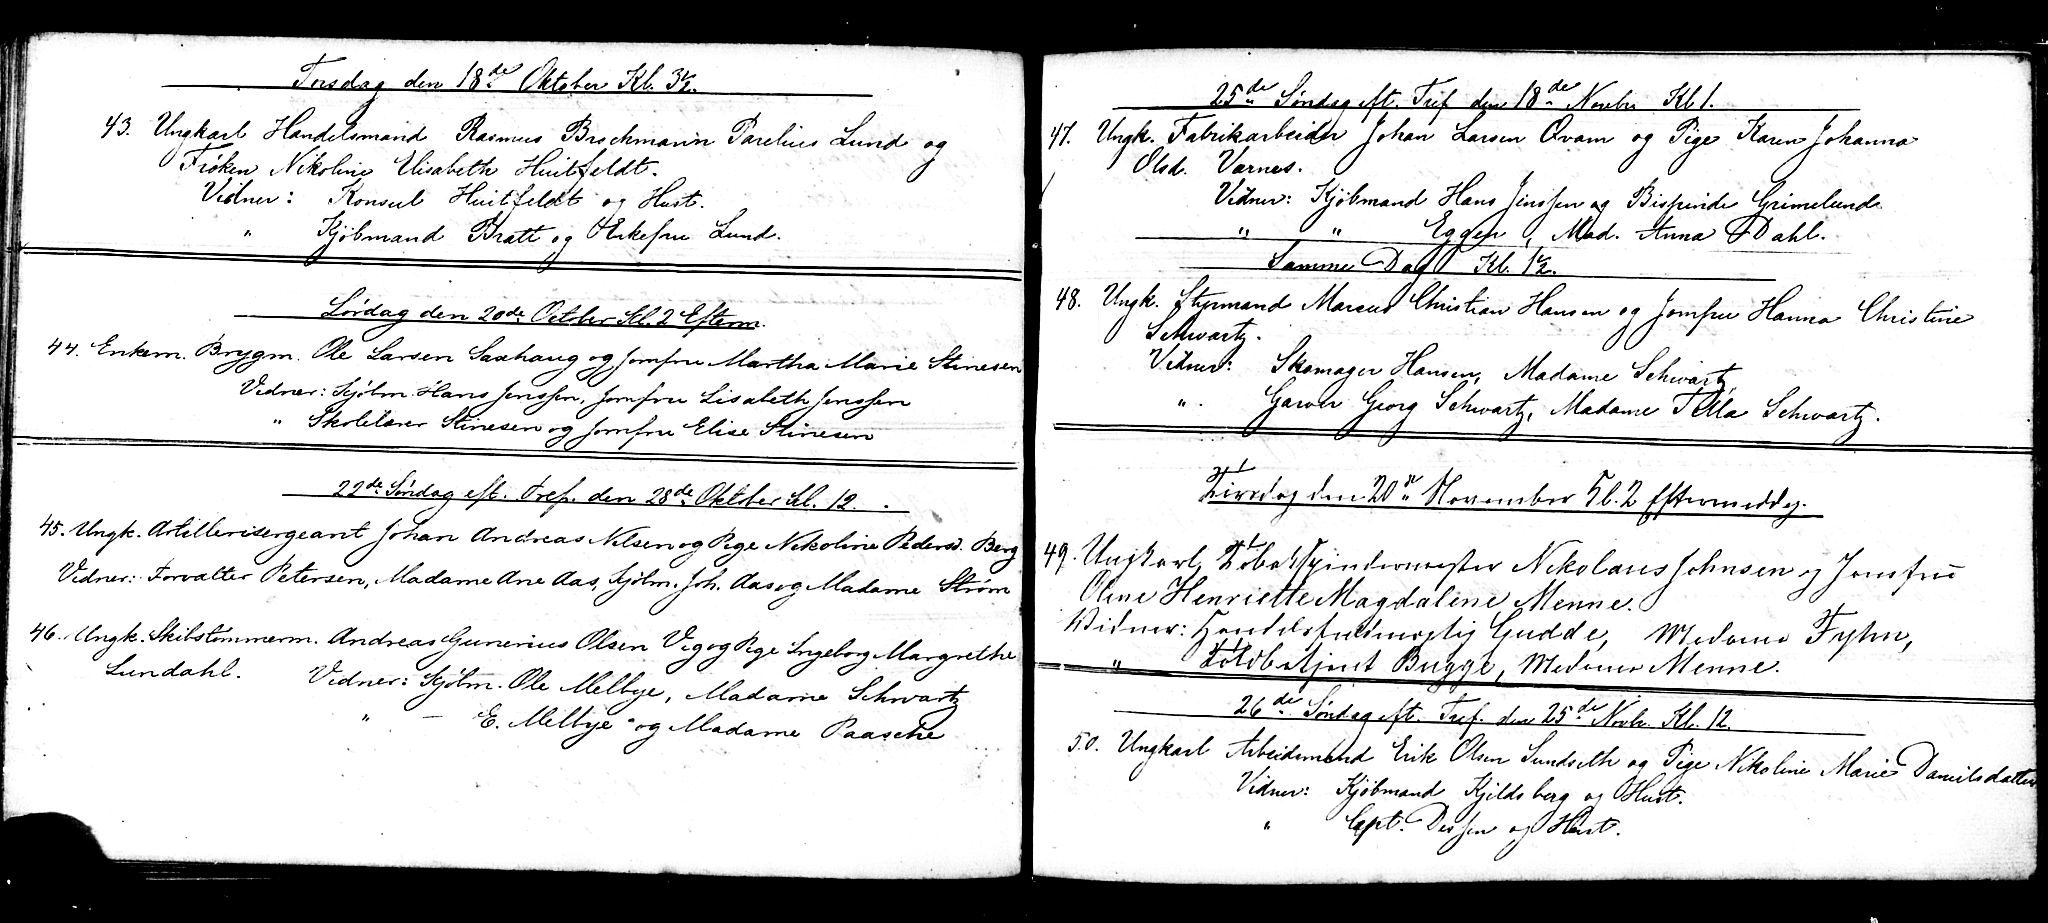 Torsdag den 18de Oktober Kl. 3½.
43. Ungkarl Handelsmand Rasmus Brochmann Parelius Lund og
Frøken Nikoline Elisabeth Huitfeldt.
Vidner: Konsul Huitfeldt og Hust.
" Kjöbmand Bratt og Enkefru Lund.
Lørdag den 20de October Kl. 2 Efterm.
44. Enkem. Brygm. Ole Larsen Saxhaug og Jomfru Martha Marie Stinesen
Vidner: Kjøbm. Hans Jenssen, Jomfru Lisabeth Jenssen
" Skolelærer Stinesen og Jomfru Elise Stinesen
22de Søndag eft. Tref. den 28de Oktober Kl. 12.
45. Ungk. Artillerisergeant Johan Andreas Nilsen og Pige Nikoline Pedersd. Berg
Vidner: Forvalter Petersen, Madame Ane Aas, Kjøbm. Joh. Aas og Madame Strøm
46. Ungk. Skibstømmerm. Andreas Gunerius Olsen Vig og Pige Ingeborg Margrethe
Lundahl. Vidner: Kjøbm. Ole Melbye, Madame Schwartz
" — E. Melbye og Madame Paasche
25de Søndag eft. Tref den 18de Novbr Kl 1.
47. Ungk. Fabrikarbeider Johan Larsen Qvam og Pige Karen Johanna
Olsd. Værnes.
Vidner: Kjöbmand Hans Jenssen og Bispinde Grimelund
" " Eggen, Mad. Anna Dahl.
Samme Dag Kl. 1½.
48. Ungk. Styrmand Marcus Christian Hansen og Jomfru Hanna Christine
Schwartz.
Vidner: Skomager Hansen, Madame Schwartz
" Garver Georg Schwartz, Madame Schwartz.
Tirsdag den 20de November Kl. 2 Eftermiddag.
49. Ungkarl, Tobakspindermester Nikolaus Johnsen og Jomfru
Oline Henriette Magdalene Menne.
Vidner: Handelsfuldmægtig Gudde, Madame Fyhn,
" Toldbetjent Bugge, Madame Menne.
26de Søndag eft. Tref. den 25de Novbr. Kl. 12.
50. Ungkarl Arbeidsmand Erik Olsen Sundseth og Pige Nikoline Marie Danielsdatter
Vidner: Kjöbmand Kjeldsberg og Hust.
" Capt. Dessen og Hust.